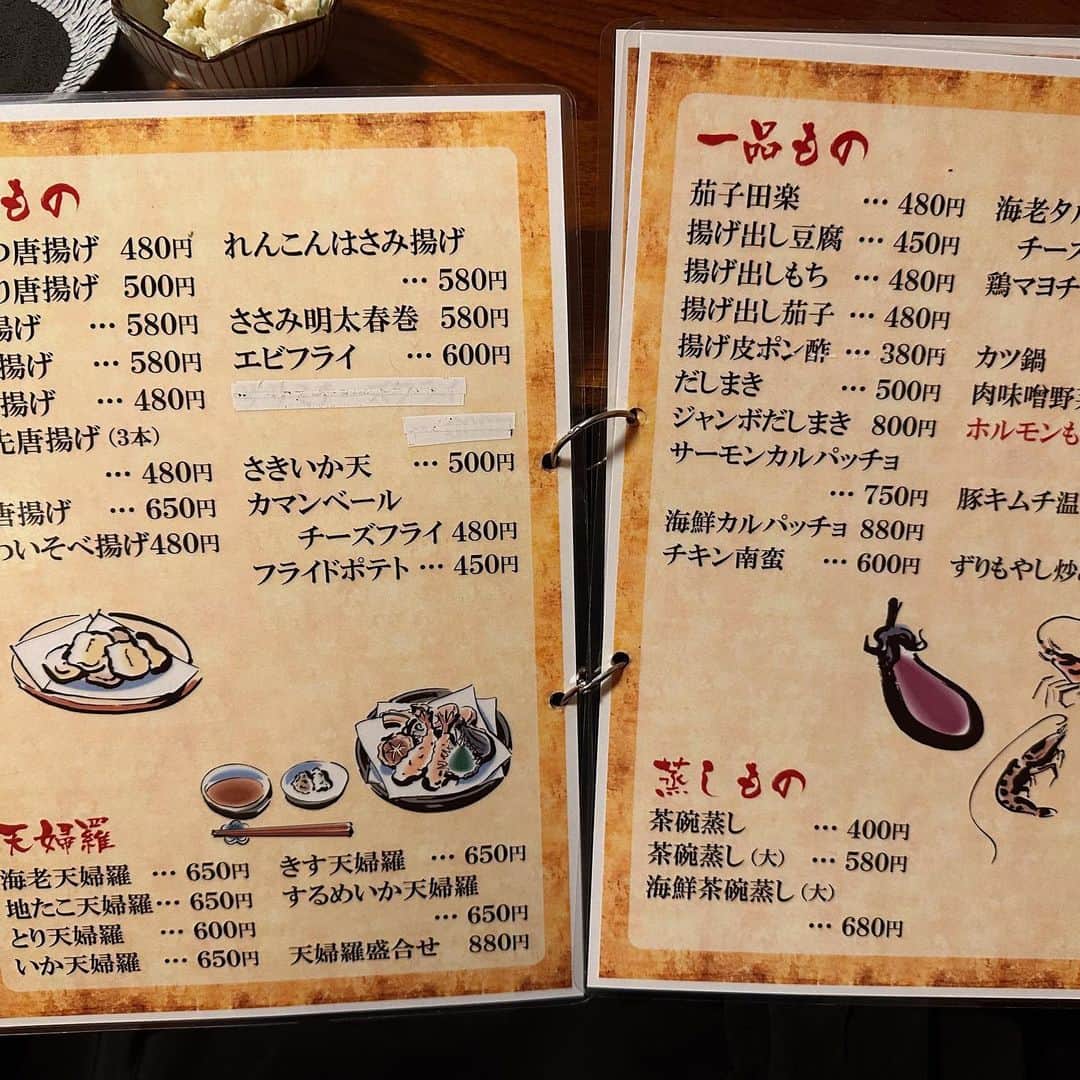 もの
つ唐揚げ 480円
り唐揚げ 500円
揚げ … 580円
揚げ … 580円
揚げ … 480円
先唐揚げ(3本)
… 480円
唐揚げ … 650円
いそべ揚げ480円
れんこんはさみ揚げ
… 580円
ささみ明太春巻 580円
エビフライ … 600円
さきいか天 … 500円
カマンベール
チーズフライ 480円
フライドポテト … 450円
天婦羅
海老天婦羅 … 650円
地たこ天婦羅 … 650円
とり天婦羅 … 600円
いか天婦羅 … 650円
きす天婦羅 … 650円
するめいか天婦羅
… 650円
天婦羅盛合せ 880円
一品もの
茄子田楽 … 480円
揚げ出し豆腐 … 450円
揚げ出しもち … 480円
揚げ出し茄子 … 480円
揚げ皮ポン酢 … 380円
だしまき … 500円
ジャンボだしまき 800円
サーモンカルパッチョ
… 750円
海鮮カルパッチョ 880円
チキン南蛮 … 600円
海老タル
チーズ
鶏マヨチ
カツ鍋
肉味噌野菜
ホルモンも
豚キムチ温
ずりもやし炒
蒸しもの
茶碗蒸し … 400円
茶碗蒸し(大) … 580円
海鮮茶碗蒸し(大)
… 680円